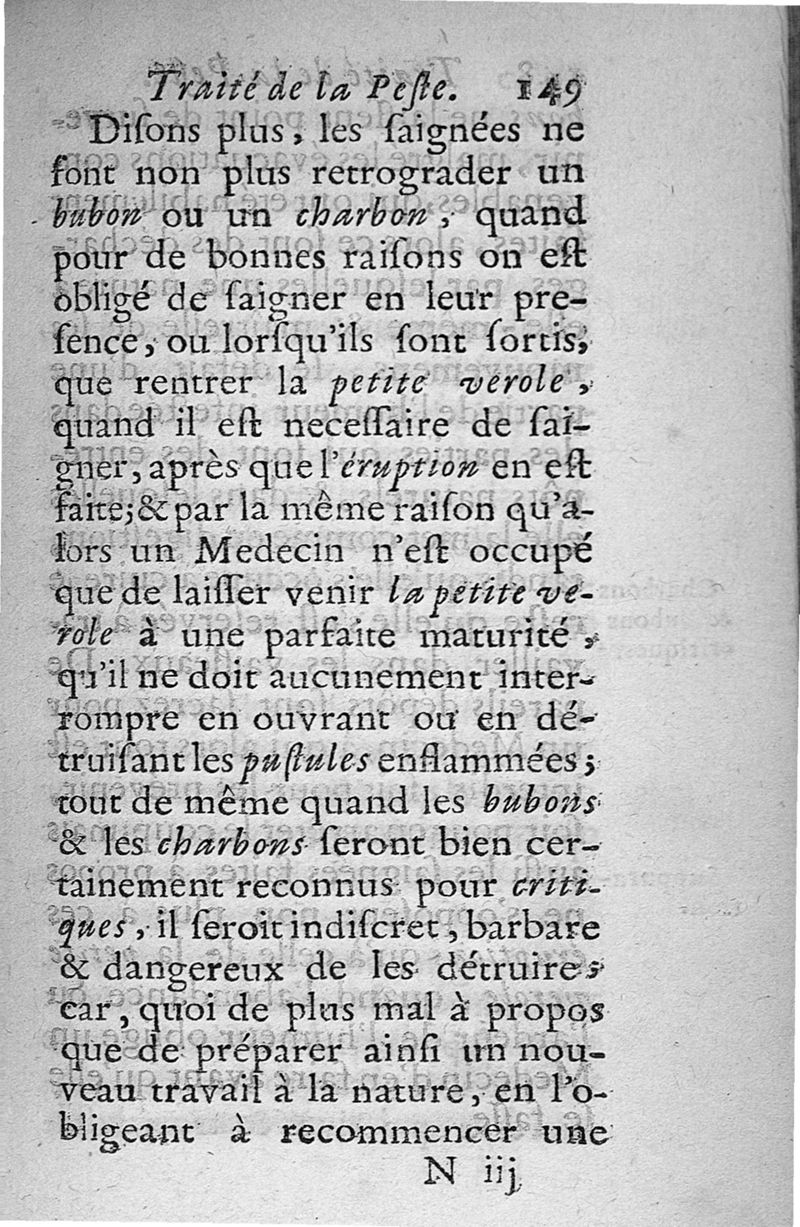 Traité de la Peſte. 149
Diſons plus, les ſaignées ne
font non plus retrograder un
bubon ou un charbon, quand
pour de bonnes raiſons on eſt
obligé de ſaigner en leur pre-
ſence, ou lorſqu'ils ſont ſortis,
que rentrer la petite verole,
quand il eſt neceſſaire de ſai-
gner, après que l'éruption en eſt
faite; & par la même raiſon qu'a-
lors un Medecin n'eſt occupé
que de laiſſer venir la petite ve-
role à une parfaite maturité,
qu'il ne doit aucunement inter-
rompre en ouvrant ou en dé-
truiſant les puſtules enflammées;
tout de même quand les bubons
& les charbons ſeront bien cer-
tainement reconnus pour criti-
ques, il ſeroit indiſcret, barbare
& dangereux de les détruire;
car, quoi de plus mal à propos
que de préparer ainſi un nou-
veau travail à la nature, en l'o-
bligeant à recommencer une
N iij